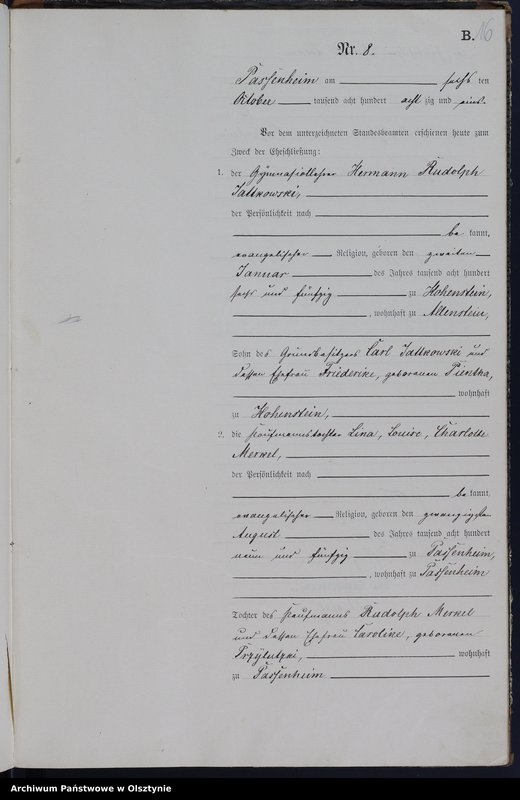 B. 16
Nr. 8.
Passenheim am sechs ten
Oktober tausend acht hundert acht zig und eins.
Vor dem unterzeichneten Standesbeamten erschienen heute zum
Zweck der Eheschließung:
1. der Gymnasiallehrer Hermann Rudolph
Jattkowski,
der Persönlichkeit nach
be kannt,
evangelischer Religion, geboren den zweiten
Januar des Jahres tausend acht hundert
sechs und fünfzig zu Hohenstein,
, wohnhaft zu Allenstein,
Sohn des Grundbesitzers Carl Jattkowski und
dessen Ehefrau Friederike, geborenen Pientka,
wohnhaft
zu Hohenstein,
2. die Kaufmannstochter Lina, Louise, Charlotte
Merkel,
der Persönlichkeit nach
be kannt,
evangelischer Religion, geboren den zwanzigsten
August des Jahres tausend acht hundert
neun und fünfzig zu Passenheim,
, wohnhaft zu Passenheim
Tochter des Kaufmanns Rudolph Merkel
und dessen Ehefrau Caroline, geborenen
Przylutzki, wohnhaft
zu Passenheim
Archiwum Państwowe w Olsztynie